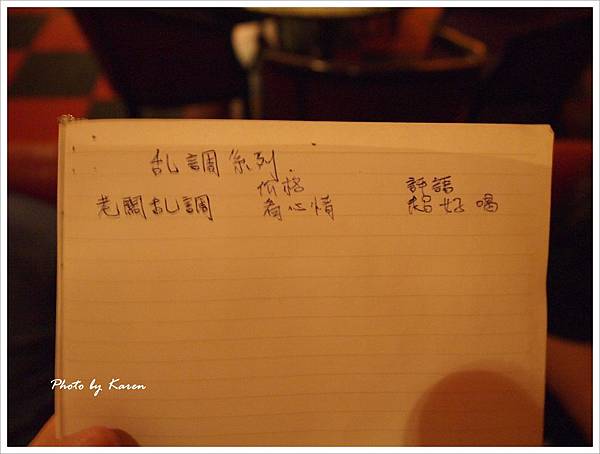 乱調系列
价格 評語
老闆乱調 看心情 超好喝
Photo by Karen